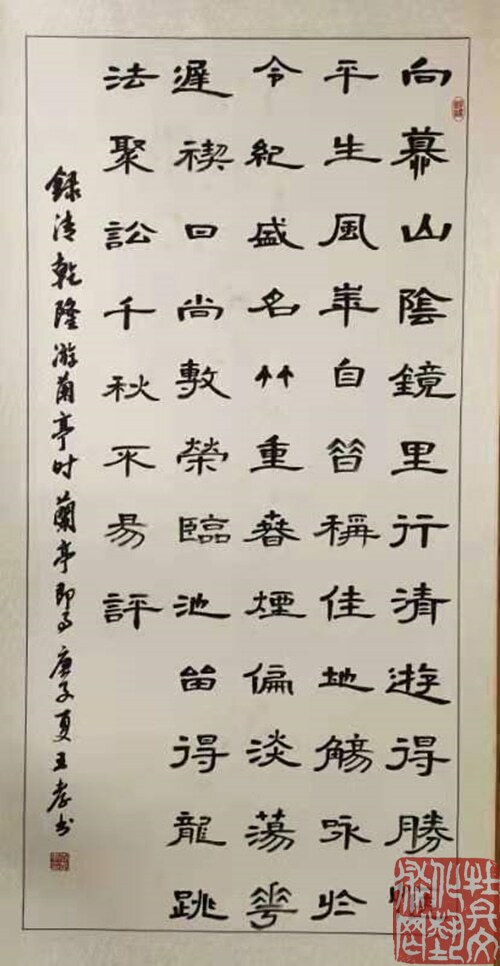 向慕山陰鏡里行清遊得勝
平生風華自昔稱佳地觴咏於
今紀盛名竹重春煙偏淡蕩花
遲禊日尚敷榮臨池留得龍跳
法聚訟千秋不易評
録清乾隆游蘭亭时蘭亭即事庚子夏王孝书